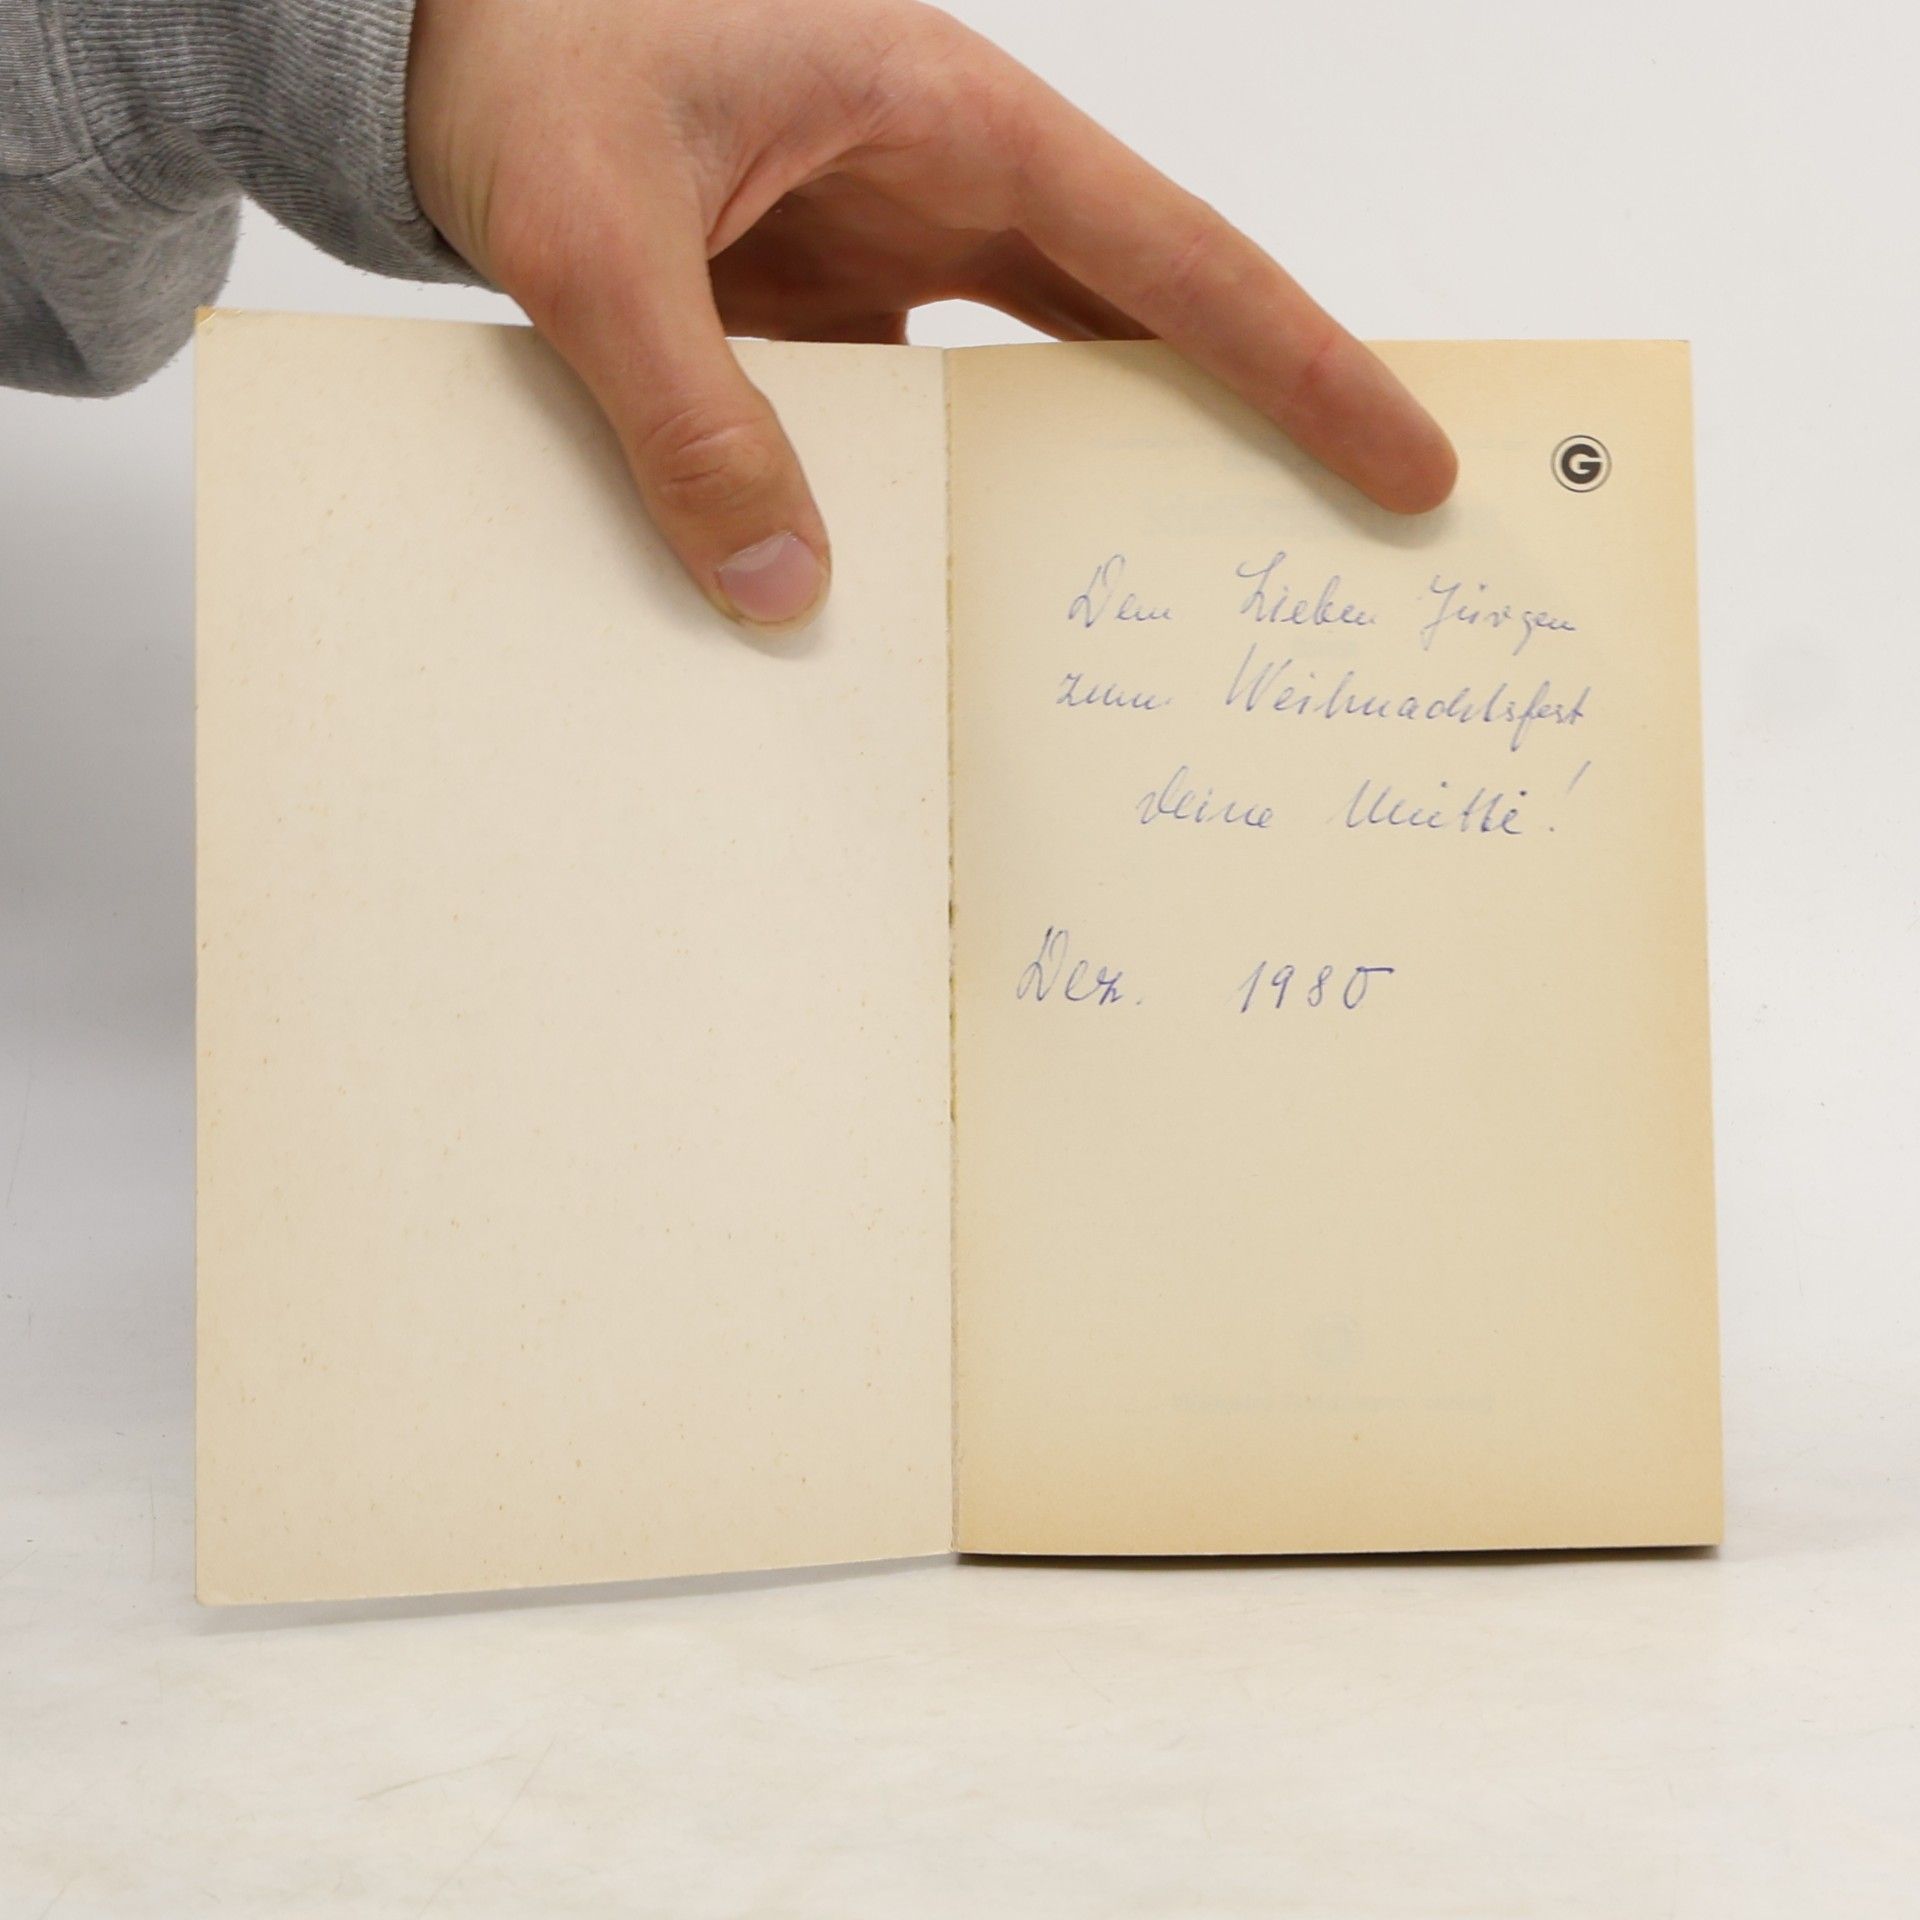 G
Dem Lieben Jürgen
zum Weihnachtsfest
deine Mutti!
Dez. 1980